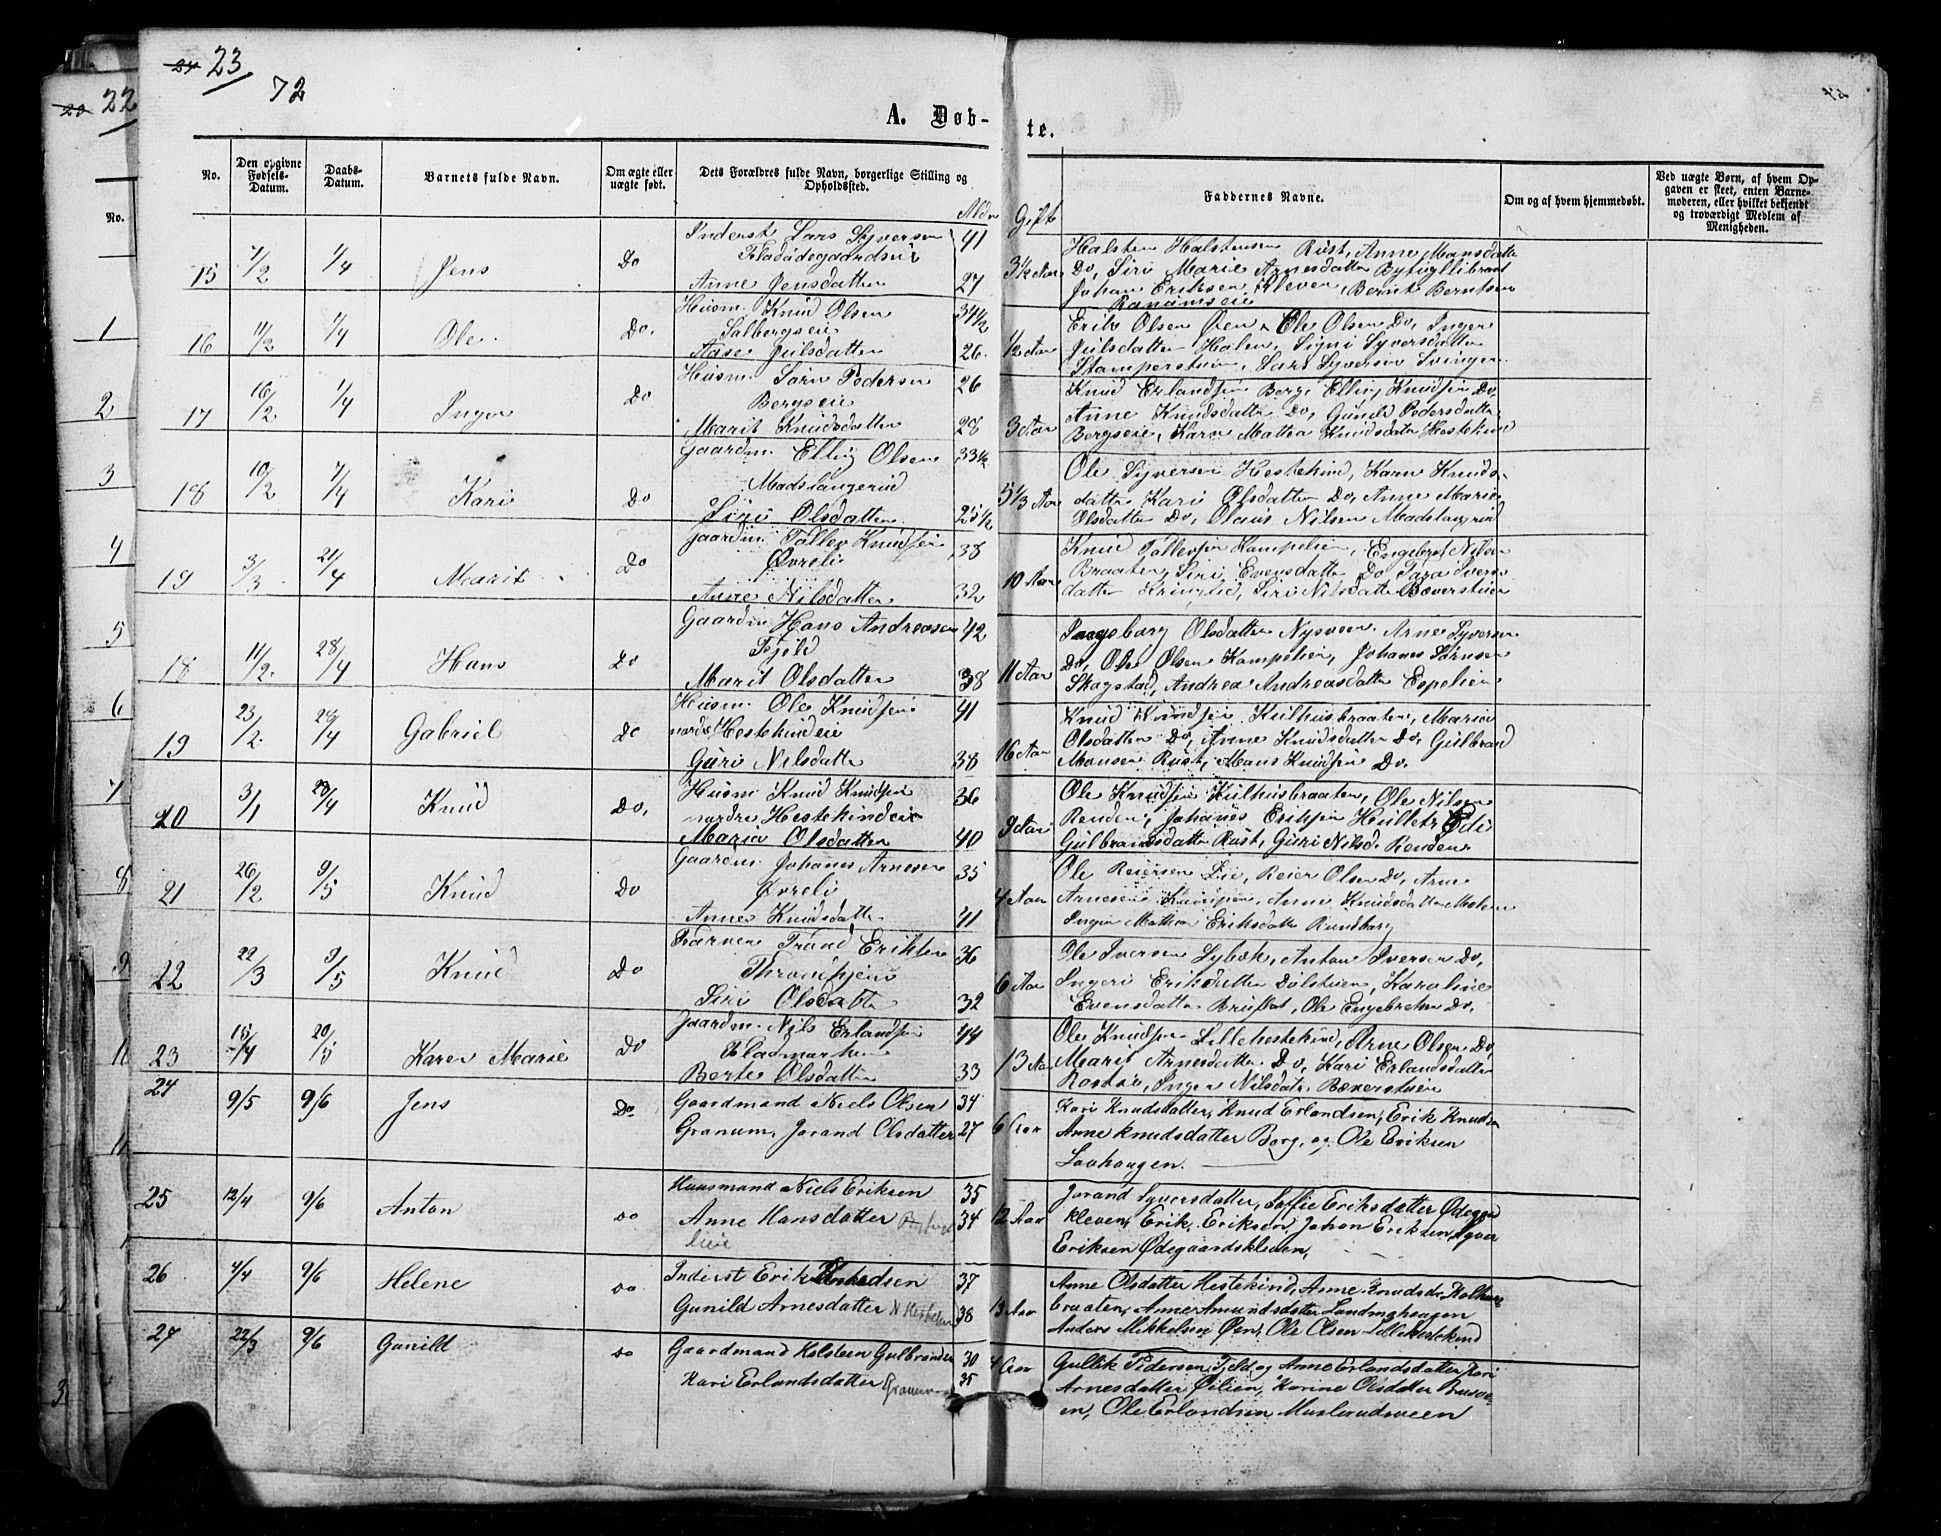 24 23
72
20 22
A. Døb-
te.
No.
Den opgivne Fødsels-Datum.
Daabs-Datum.
Barnets fulde Navn.
Om ægte eller uægte født.
Dets Forældres fulde Navn, borgerlige Stilling og Opholdssted.
Alder
Gift
Faddernes Navne.
Om og af hvem hjemmedøbt.
Ved uægte Børn, af hvem Op-
gaven er skeet, enten Barne-
moderen, eller hvilket bekjendt
og troværdigt Medlem af
Menigheden.
No.
1
2
3
4
5
6
7
8
9
15 7/2 1/4 Jens Do
Inderst Lars Syversen 41
Anne Jensdatter 27
3½ Aar
Halsten Halstensen Rust, Anne Mansdatter
Do, Siri Marie Arnesdatter
Johan Eriksen Kleven, Bernt Berntsen
16 11/2 1/4 Ole Do.
Husm. Knud Olsen 34½
Solbergseie
Aase Juilsdatter 26.
½ Aar
Erik Olsen Øen, Ole Olsen Do, Inger
Juilsdatter Halen, Signi Syversdatter
Lars Syversen Svingen
17 16/2 1/4 Inger Do
Husm. Sørn Pedersen 26
Bergseie
Marit Knudsdatter 28
3 Aar
Knud Erlandsen Berg, Elling Knudsen Do,
Anne Knudsdatter Do, Gunild Pedersdatter
Bergseie, Karn Mathea Knudsdatter Hestekind
18 10/2 7/4 Kari Do
Gaardm. Elling Olsen 33½
Madslangerud
Siri Olsdatter 25½
5⅓ Aar
Ole Syversen Hestekind, Karn Knuds-
datter Kari Olsdatter Do, Anne Marie
Olsdatter Do, Olaus Nilsen Madslangrud
19 3/3 21/4 Marit Do
Gaardm. Tollev Knudsen 38
Øvreli
Anne Nilsdatter 32
10 Aar
Knud Tollevsen Kampelien, Engebret Nilsen
Braaten, Siri Evensdatter Do
datter Kringlid, Siri Nilsdatter Bæverstuen
18 11/2 28/4 Hans Do
Gaardm Hans Andreasen 42
Fjeld
Marit Olsdatter 38
11 Aar
Ingeborg Olsdatter Nysveen. Arne Syversen
Do, Ole Olsen Kampelien, Johanes Sørnsen
Skogstad, Andrea Andreasdatter Espelien
19 23/2 28/4 Gabriel Do
Husm. Ole Knudsen 41
nordre Hestekindeie
Guri Nilsdatter 38
16 Aar
Knud Knudsen Kulhusbraaten, Maria
Olsdatter Do, Anne Knudsdatter Do, Gulbrand
Monsen Rust, Mons Knudsen Do.
20 3/1 28/4 Knud Do,
Husm Knud Knudsen 36
nordre Hestekindeie
Maria Olsdatter 40
9 Aar
Ole Knudsen Kulhusbraaten, Ole Nilsen
Renden, Johanes Eriksen
Gulbrandsdatter Rust, Guri Nilsd. Renden
21 26/2 9/5 Knud Do
Gaardm. Johanes Arnesen 35
Øvreli
Anne Knudsdatter 41
4 Aar
Ole Reiersen Lie, Reier Olsen Do, Arne
Arnesen Anne Knudsdatter Molen
Inger Mathea Eriksdatter Rundberg
22 22/3 9/5 Knud Do
Trond Eriksen 36
Siri Olsdatter 32
6 Aar
Ole Iversen Sybæk, Anton Iversen Do,
Ingeri Eriksdatter Dølstuen, Karoline
Evensdatter Ole Engebretsen Do.
23 15/4 20/5 Karen Marie Do
Gaardm. Nils Erlandsen 44
Fladmarken
Berte Olsdatter 33
13 Aar
Ole Knudsen Lillehestekind, Arne Olsen Do,
Marit Arnesdatter Do, Kari Erlandsdatter
Inger Nilsdatr. Bæverstuen
24 9/5 9/6 Jens Do
Gaardmand Niels Olsen 34
Granum, Jorand Olsdatter 27
6 Aar
Kari Knudsdatter, Knud Erlandsen, Erik Knudsen
Anne Knudsdatter Berg, og Ole Eriksen
Laahaugen.
25 12/4 9/6 Anton do
Huusmand Niels Eriksen 35
Anne Hansdatter 34
12 Aar
Jorand Syversdatter, Soffie Eriksdatter Ødegaard
kleven, Erik Eriksen, Johan Eriksen, Syver
Eriksen Ødegaardskleven,
26 4/4 9/6 Helene do
Inderst Erik Knudsen 37
Gunild Arnesdatter 38
13 Aar
Anne Olsdatter Hestekind, Anne Knudsdr. Kolhus-
braaten, Anne Amundsdatter
Anders Mikkelsen Øen, Ole Olsen Lillehestekind
27 22/3 9/6 Gunild do
Gaardmand Halsteen Gulbrandsen 30
Kari Erlandsdatter Granum 35
4 Aar
Gullik Pedersen Fjeld og Anne Erlandsdatter, Kari
Arnesdatter Øilien, Karine Olsdatter
en, Ole Erlandsen